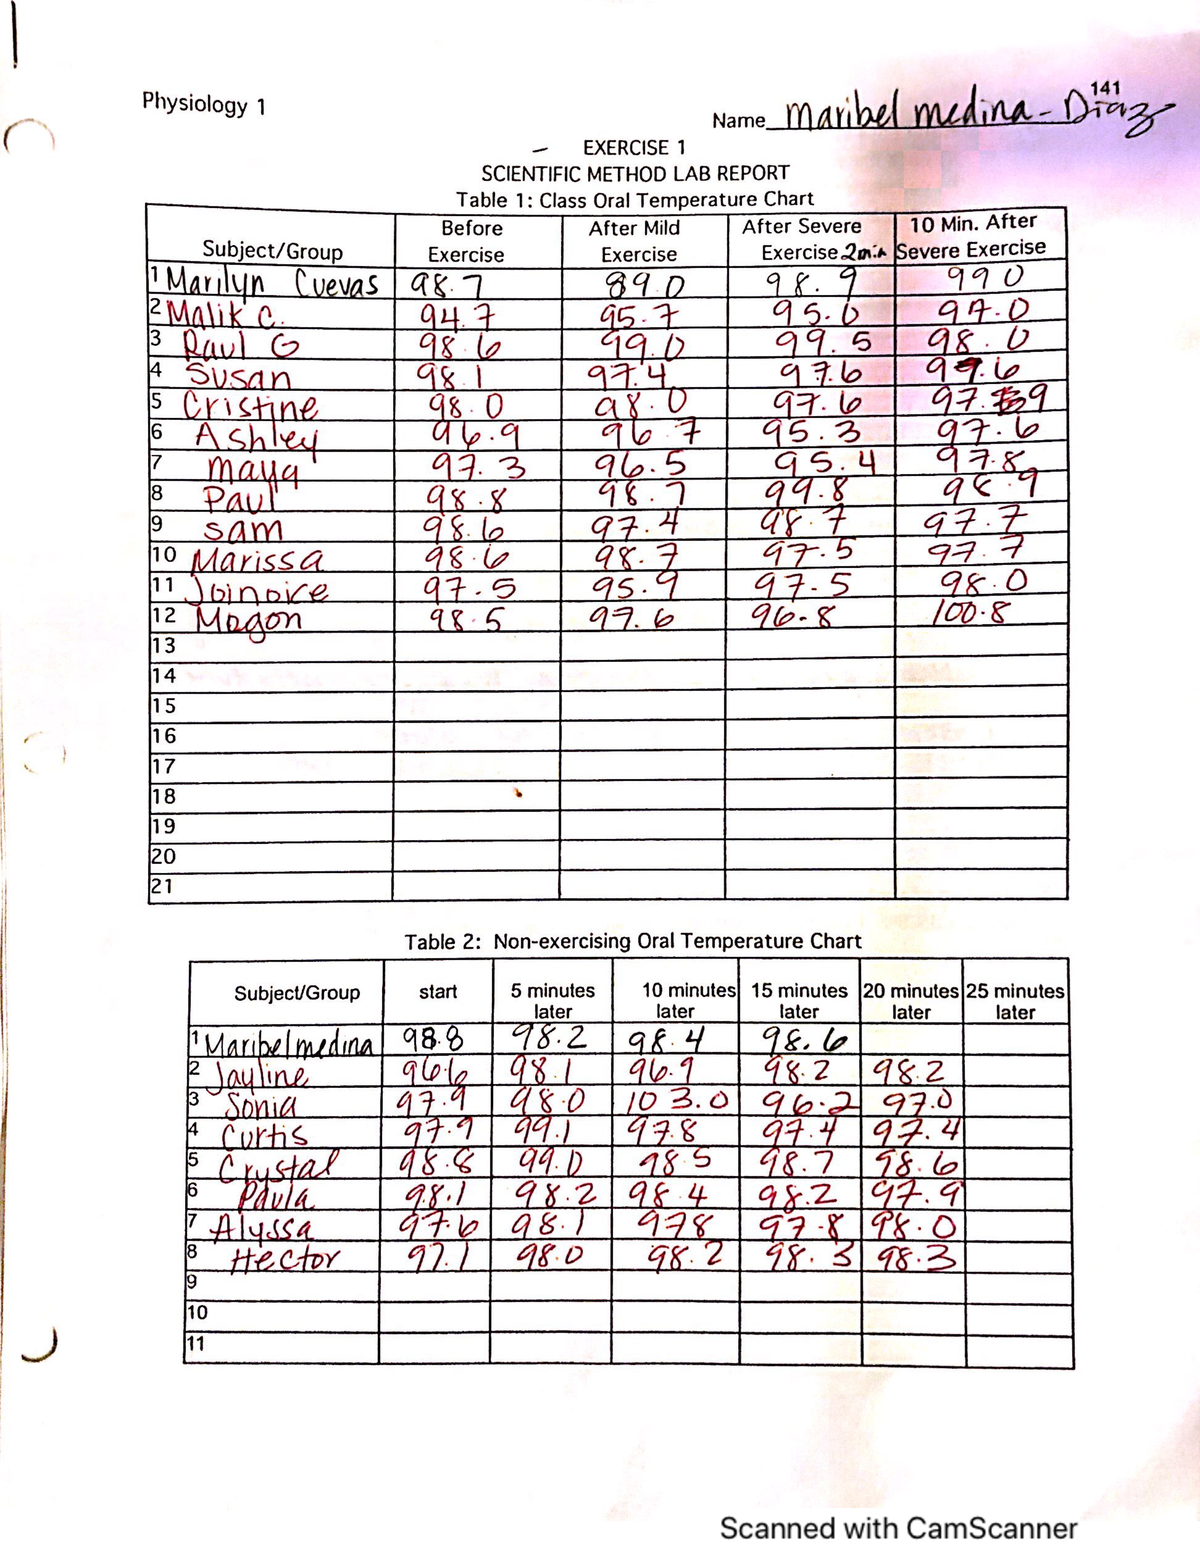 Physiology 1
141
Name maribel medina - Diaz
EXERCISE 1
SCIENTIFIC METHOD LAB REPORT
Table 1: Class Oral Temperature Chart
Subject/Group Before Exercise After Mild Exercise After Severe Exercise 2min 10 Min. After Severe Exercise
1 Marilyn Cuevas 98.7 89.0 98.9 99 0
2 Malik C. 94.7 95.7 95.0 97.0
3 Raul G 98.6 99.0 99.5 98.0
4 Susan 98.1 97.4 97.6 97.6
5 Cristine 98.0 98.0 97.6 97.9
6 Ashley 96.9 96.7 95.3 97.6
7 maya 97.3 96.5 95.4 97.8
8 Paul 98.8 98.7 99.8 98.9
9 sam 98.6 97.4 98.7 97.7
10 Marissa 98.6 98.7 97.5 97.7
11 Joinoire 97.5 95.9 97.5 98.0
12 Magon 98.5 97.6 96.8 100.8
13
14
15
16
17
18
19
20
21
Table 2: Non-exercising Oral Temperature Chart
Subject/Group start 5 minutes later 10 minutes later 15 minutes later 20 minutes later 25 minutes later
1 Maribel medina 98.8 98.2 98.4 98.6
2 Jayline 96.6 98.1 96.9 98.2 98.2
3 Sonia 97.9 98.0 103.0 96.2 97.0
4 Curtis 97.9 99.1 97.8 97.4 97.4
5 Crystal 98.8 99.0 98.5 98.7 98.6
6 Paula 98.1 98.2 98.4 98.2 97.9
7 Alyssa 97.6 98.1 978 97.8 98.0
8 Hector 97.1 98.0 98.2 98.3 98.3
9
10
11
Scanned with CamScanner